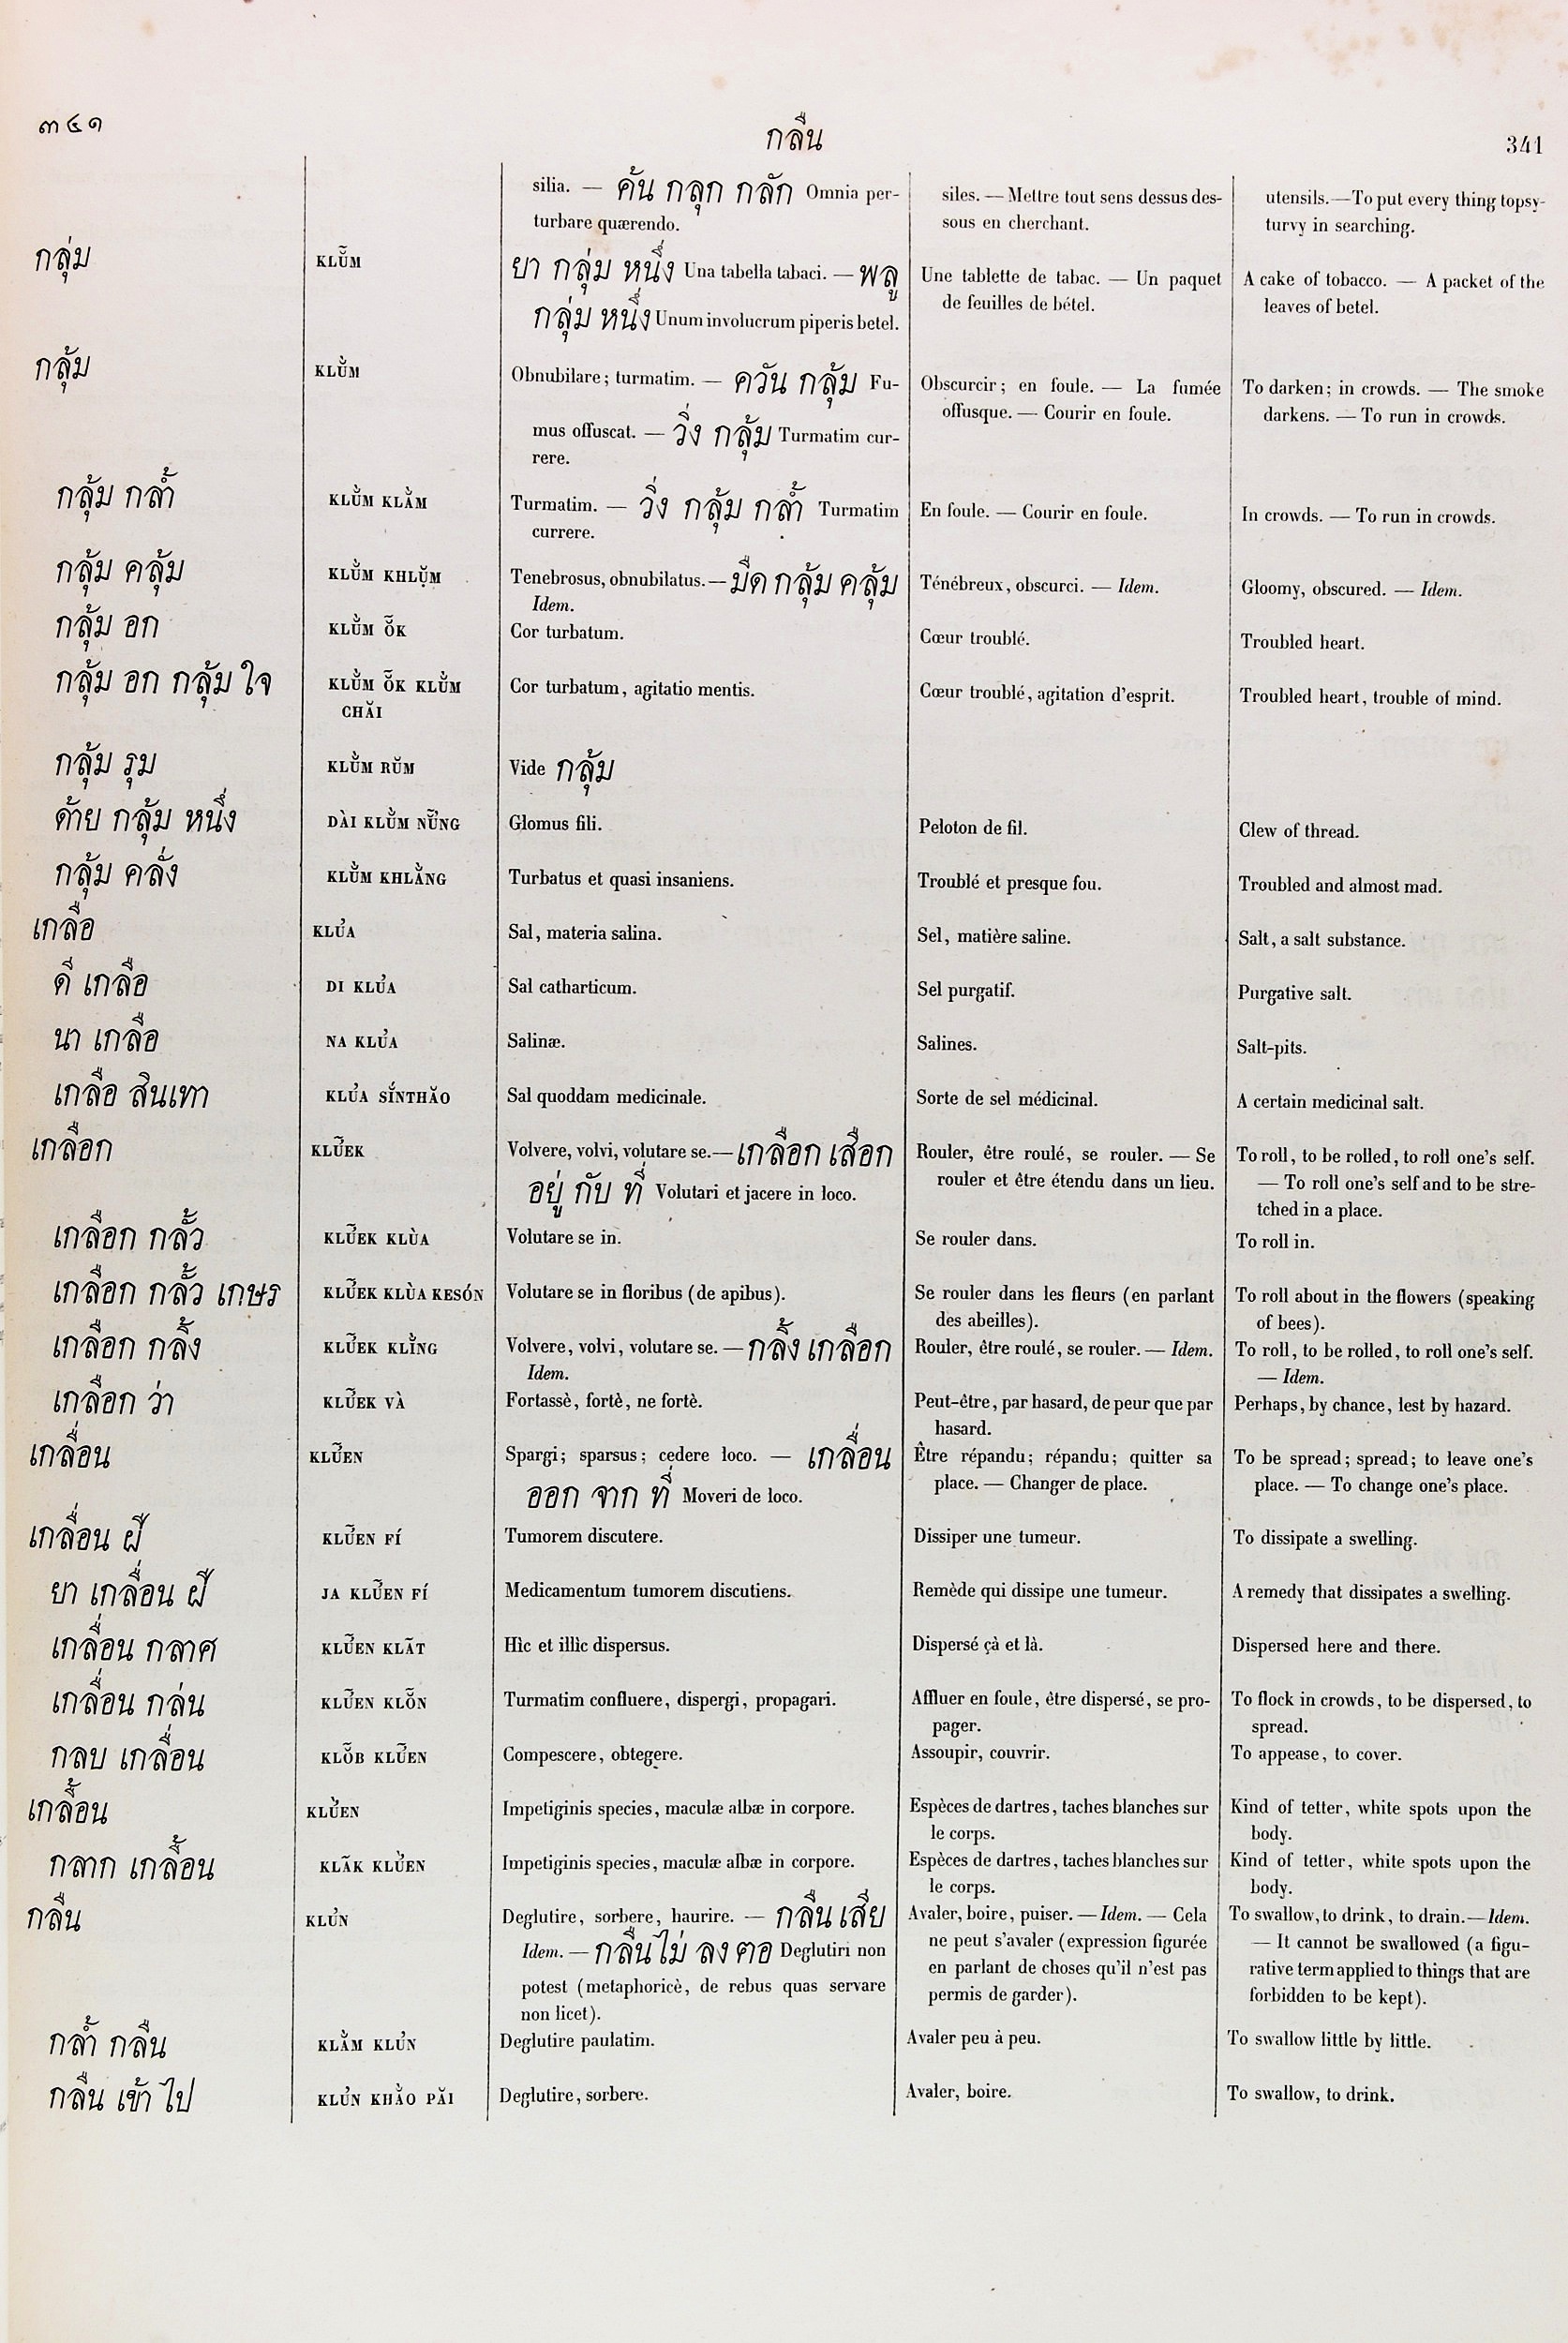 ๓๔๑
กลืน
341
silia. — ค้น กลุก กลัก Omnia per-
turbare quærendo.
siles. — Mettre tout sens dessus des-
sous en cherchant.
utensils.—To put every thing topsy-
turvy in searching.
กลุ่ม
ยา กลุ่ม หนึ่ง Una tabella tabaci. — พลู
กลุ่ม หนึ่ง Unum involucrum piperis betel.
Une tablette de tabac. — Un paquet
de feuilles de bétel.
A cake of tobacco. — A packet of the
leaves of betel.
กลุ้ม
Obnubilare; turmatim. — ควัน กลุ้ม Fu-
mus offuscat. — วิ่ง กลุ้ม Turmatim cur-
rere.
Obscurcir; en foule. — La fumée
offusque. — Courir en foule.
To darken; in crowds. — The smoke
darkens. — To run in crowds.
กลุ้ม กล้ำ
Turmatim. — วิ่ง กลุ้ม กล้ำ Turmatim
currere.
En foule. — Courir en foule.
In crowds. — To run in crowds.
กลุ้ม คลุ้ม
Tenebrosus, obnubilatus.—มืด กลุ้ม คลุ้ม
Idem.
Ténébreux, obscurci. — Idem.
Gloomy, obscured. — Idem.
กลุ้ม อก
Cor turbatum.
Cœur troublé.
Troubled heart.
กลุ้ม อก กลุ้ม ใจ
CHĂI
Cor turbatum, agitatio mentis.
Cœur troublé, agitation d'esprit.
Troubled heart, trouble of mind.
กลุ้ม รุม
Vide กลุ้ม
ด้าย กลุ้ม หนึ่ง
Glomus fili.
Peloton de fil.
Clew of thread.
กลุ้ม คลั่ง
Turbatus et quasi insaniens.
Troublé et presque fou.
Troubled and almost mad.
เกลือ KLU̓A
Sal, materia salina.
Sel, matière saline.
Salt, a salt substance.
ดี เกลือ DI KLU̓A
Sal catharticum.
Sel purgatif.
Purgative salt.
นา เกลือ NA KLU̓A
Salinæ.
Salines.
Salt-pits.
เกลือ สินเทา
Sal quoddam medicinale.
Sorte de sel médicinal.
A certain medicinal salt.
เกลือก
Volvere, volvi, volutare se.—เกลือก เสือก
อยู่ กับ ที่ Volutari et jacere in loco.
Rouler, être roulé, se rouler. — Se
rouler et être étendu dans un lieu.
To roll, to be rolled, to roll one's self.
— To roll one's self and to be stre-
tched in a place.
เกลือก กลั้ว
Volutare se in.
Se rouler dans.
To roll in.
เกลือก กลั้ว เกษร
Volutare se in floribus (de apibus).
Se rouler dans les fleurs (en parlant
des abeilles).
To roll about in the flowers (speaking
of bees).
เกลือก กลิ้ง
Volvere, volvi, volutare se. — กลิ้ง เกลือก
Idem.
Rouler, être roulé, se rouler. — Idem.
To roll, to be rolled, to roll one's self.
— Idem.
เกลือก ว่า
Fortassè, fortè, ne fortè.
Peut-être, par hasard, de peur que par
hasard.
Perhaps, by chance, lest by hazard.
เกลื่อน
Spargi; sparsus; cedere loco. — เกลื่อน
ออก จาก ที่ Moveri de loco.
Être répandu; répandu; quitter sa
place. — Changer de place.
To be spread; spread; to leave one's
place. — To change one's place.
เกลื่อน ฝี
Tumorem discutere.
Dissiper une tumeur.
To dissipate a swelling.
ยา เกลื่อน ฝี
Medicamentum tumorem discutiens.
Remède qui dissipe une tumeur.
A remedy that dissipates a swelling.
เกลื่อน กลาศ
Hìc et illìc dispersus.
Dispersé çà et là.
Dispersed here and there.
เกลื่อน กล่น
Turmatim confluere, dispergi, propagari.
Affluer en foule, être dispersé, se pro-
pager.
To flock in crowds, to be dispersed, to
spread.
กลบ เกลื่อน
Compescere, obtegere.
Assoupir, couvrir.
To appease, to cover.
เกลื้อน
Impetiginis species, maculæ albæ in corpore.
Espèces de dartres, taches blanches sur
le corps.
Kind of tetter, white spots upon the
body.
กลาก เกลื้อน
Impetiginis species, maculæ albæ in corpore.
Espèces de dartres, taches blanches sur
le corps.
Kind of tetter, white spots upon the
body.
กลืน KLU̓N
Deglutire, sorbere, haurire. — กลืน เสีย
Idem. — กลืน ไม่ ลง คอ Deglutiri non
potest (metaphoricè, de rebus quas servare
non licet).
Avaler, boire, puiser. — Idem. — Cela
ne peut s'avaler (expression figurée
en parlant de choses qu'il n'est pas
permis de garder).
To swallow, to drink, to drain.—Idem.
— It cannot be swallowed (a figu-
rative term applied to things that are
forbidden to be kept).
กล้ำ กลืน
Deglutire paulatim.
Avaler peu à peu.
To swallow little by little.
กลืน เข้า ไป
Deglutire, sorbere.
Avaler, boire.
To swallow, to drink.